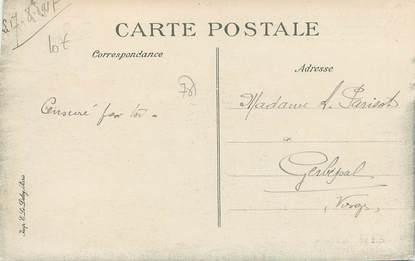 CARTE POSTALE
Correspondance
Adresse
lot
78
Censuré par toi.
Madame L. Parisot
à
Gerbépal
Vosges